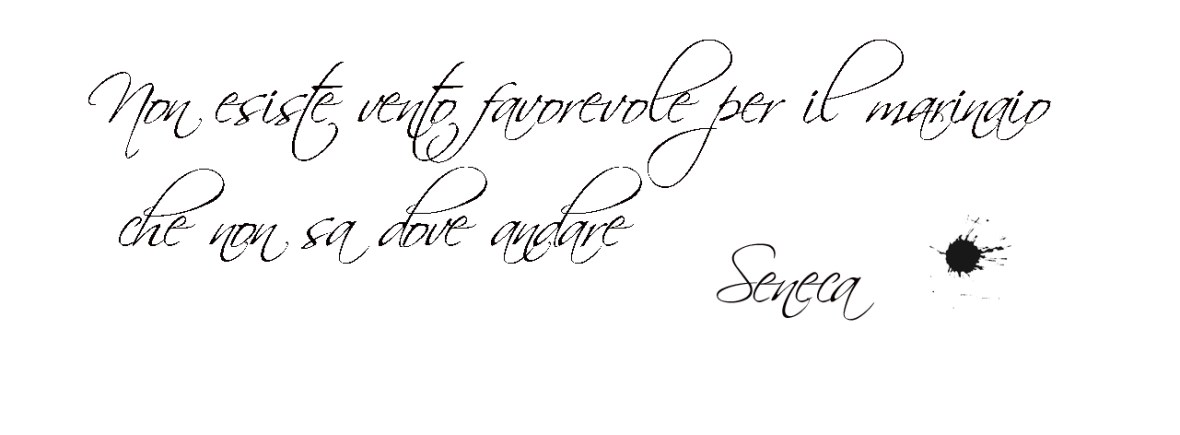 Non esiste vento favorevole per il marinaio
che non sa dove andare
Seneca